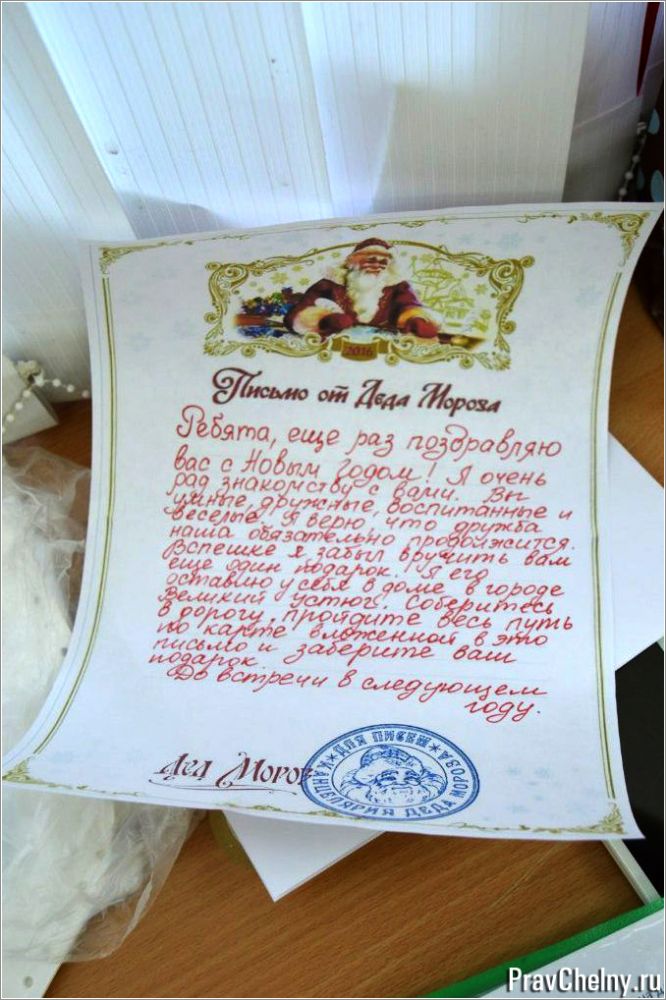 2016
Письмо от Деда Мороза
Ребята, еще раз поздравляю
вас с Новым Годом! Я очень
рад знакомству с вами. Вы
умные, дружные, воспитанные и
веселые. Я верю, что дружба
наша обязательно продолжится.
Вспешке я забыл вручить вам
еще один подарок. Я его
оставлю у себя в доме в городе
Великий Устюг. Соберитесь
в дорогу, пройдите весь путь
по карте вложенной в это
письмо и заберите ваш
подарок.
До встречи в следующем
году.
Дед Мороз
★ ДЛЯ ПИСЕМ ★
КАНЦЕЛЯРИЯ ДЕДА МОРОЗА
PravChelny.ru